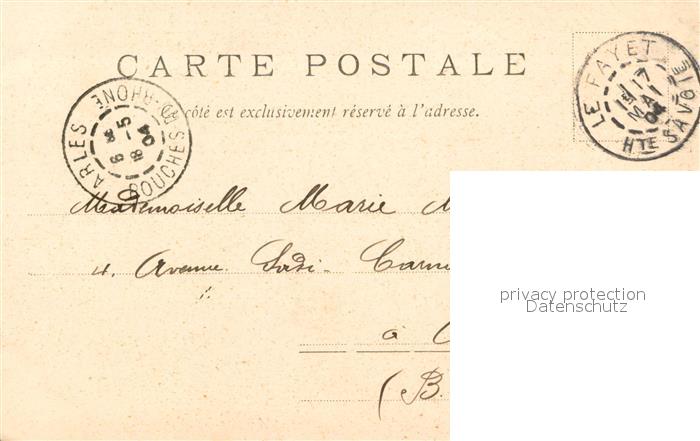 CARTE POSTALE
côté est exclusivement réservé à l'adresse.
ARLES BOUCHES-DU-RHONE
8-5
04
LE FAYET HTE SAVOIE
17
MAI
04
Mademoiselle Marie M
4. Avenue Sadi-Carn
à
(B.
privacy protection
Datenschutz